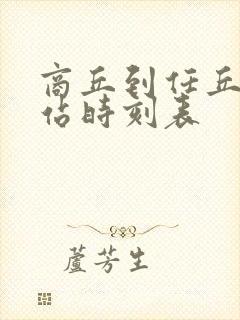 商丘到任丘
佔時刻表
蘆芳生